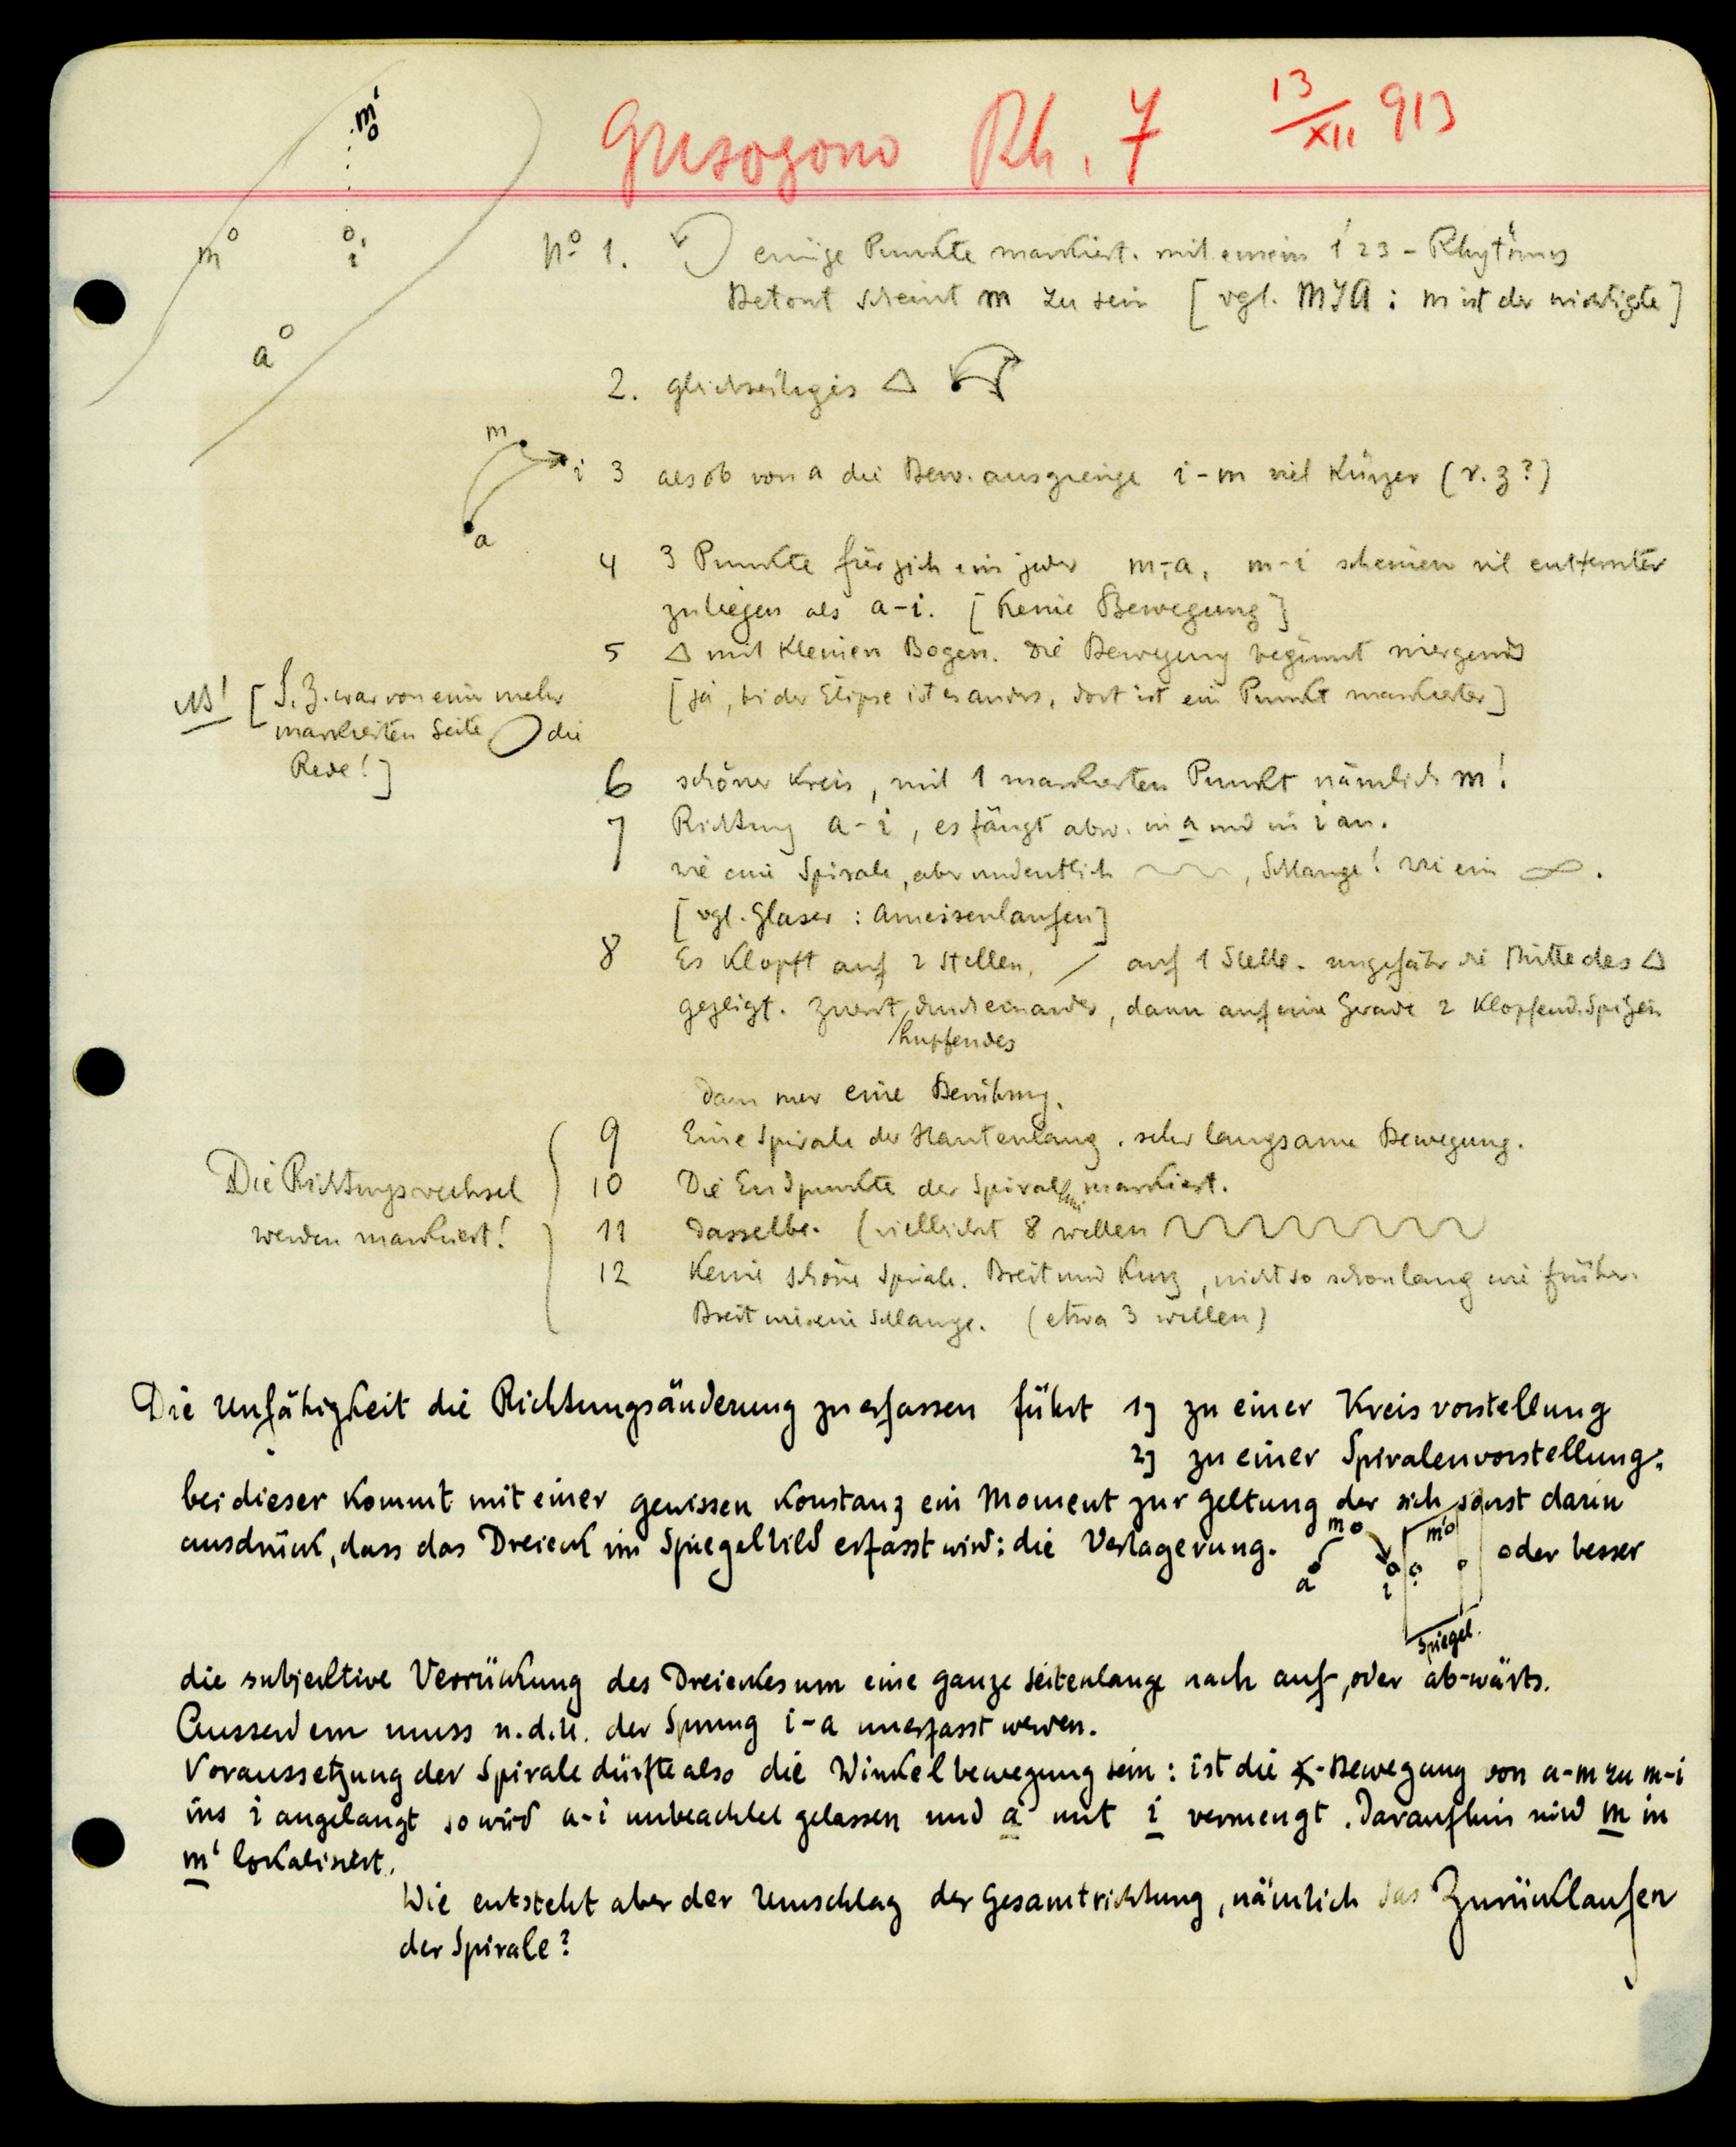 Grisogono Rh. 7 13/XII 913
m'
m i
a
No 1. einige Punkte markiert. mit einem 1 2 3 - Rhytmus
Betont scheint m zu sein [vgl. MJA: m ist der wichtigste]
2. gleichseitiges △
m
i
a
3 als ob von a die Bew. ausgienge i-m viel Kürzer (r. z?)
4 3 Punkte für sich ein jeder m-a, m-i scheinen viel entfernter
zuliegen als a-i. [Keine Bewegung]
5 △ mit Kleinen Bogen. Die Bewegung beginnt niergends
[ja, bei der Elipse ist es anders, dort ist ein Punkt markierter]
NB! [S. Z. war von einer mehr
markierten Seite die
Rede!]
6 schöner Kreis, mit 1 markierten Punkt nämlich m!
7 Richtung a-i, es fängt abw. in a und in i an.
wie eine Spirale, aber undeutlich, Schlange! Wie ein ∞.
[vgl. Glaser: Ameisenlaufen]
8 Es Klopft auf 2 Stellen, / auf 1 Stelle. ungefähr die Mitte des △
gezeigt. Zuerst durcheinander, dann auf eine Gerade 2 Klopfend. Spitzen
hupfendes
dann nur eine Berührung.
9 Eine Spirale der Haut entlang. sehr langsame Bewegung.
Die Richtungswechsel
werden markiert!
10 Die Endpunkte der Spirale markiert.
11 Dasselbe. (vielleicht 8 wellen
12 Keine schöne Spirale. Breit und Kurz, nicht so schon lang wie früher.
Breit wie eine Schlange. (etwa 3 wellen)
Die Unfähigkeit die Richtungsänderung zu erfassen führt 1) zu einer Kreisvorstellung
2) zu einer Spiralenvorstellung;
bei dieser Kommt mit einer gewissen Konstanz ein Moment zur Geltung der sich sonst darin
ausdrückt, dass das Dreieck im Spiegelbild erfasst wird: die Verlagerung. oder besser
m m'
a i
Spiegel.
die subjektive Verrückung des Dreieckes um eine ganze Seitenlange nach auf-, oder ab-wärts.
Ausserdem muss n.d.U. der Sprung i-a unerfasst werden.
Voraussetzung der Spirale dürfte also die Winkelbewegung sein: ist die ∢-Bewegung von a-m zu m-i
ins i angelangt so wird a-i unbeachtet gelassen und a mit i vermengt. Daraufhin wird m in
m' lokalisiert.
Wie entsteht aber der Umschlag der Gesamtrichtung, nämlich das Zurücklaufen
der Spirale?